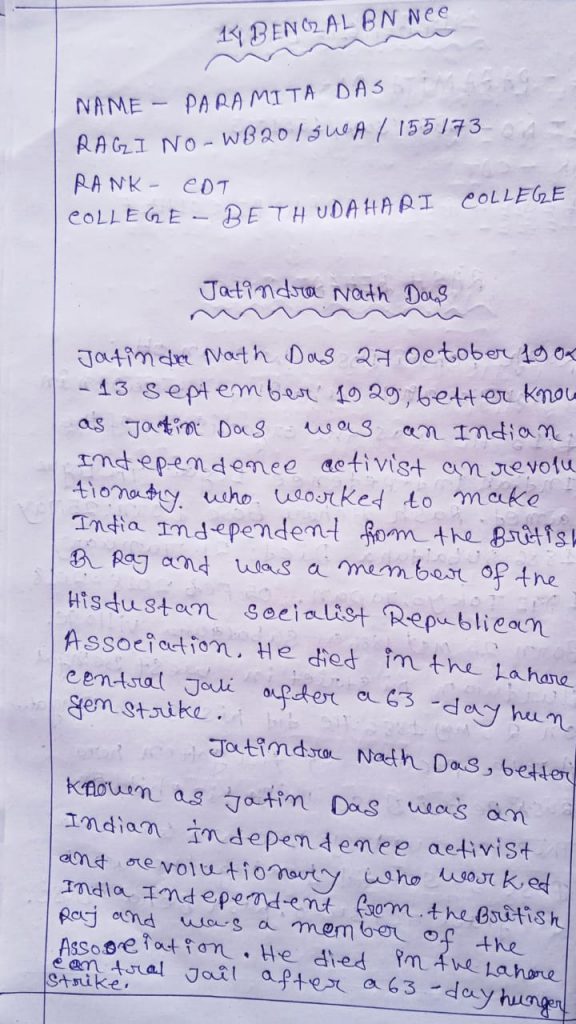 14 BENGAL BN NCC
NAME - PARAMITA DAS
RAGI NO - WB20/SWA/155173
RANK - CDT
COLLEGE - BETHUDAHARI COLLEGE
Jatindra Nath Das
Jatindra Nath Das 27 October 190
- 13 September 1929, better know
as Jatin Das was an Indian
Independence activist an revolu
tionary who worked to make
India Independent from the British
Raj and was a member of the
Hisdustan Socialist Republican
Association. He died in the Lahore
central Jali after a 63-day hun
gen strike.
Jatindra Nath Das, better
known as Jatin Das was an
Indian independence activist
and revolutionary who worked
India Independent from the British
Raj and was a member of the
Association. He died in the Lahore
central Jail after a 63-day hunger
strike.